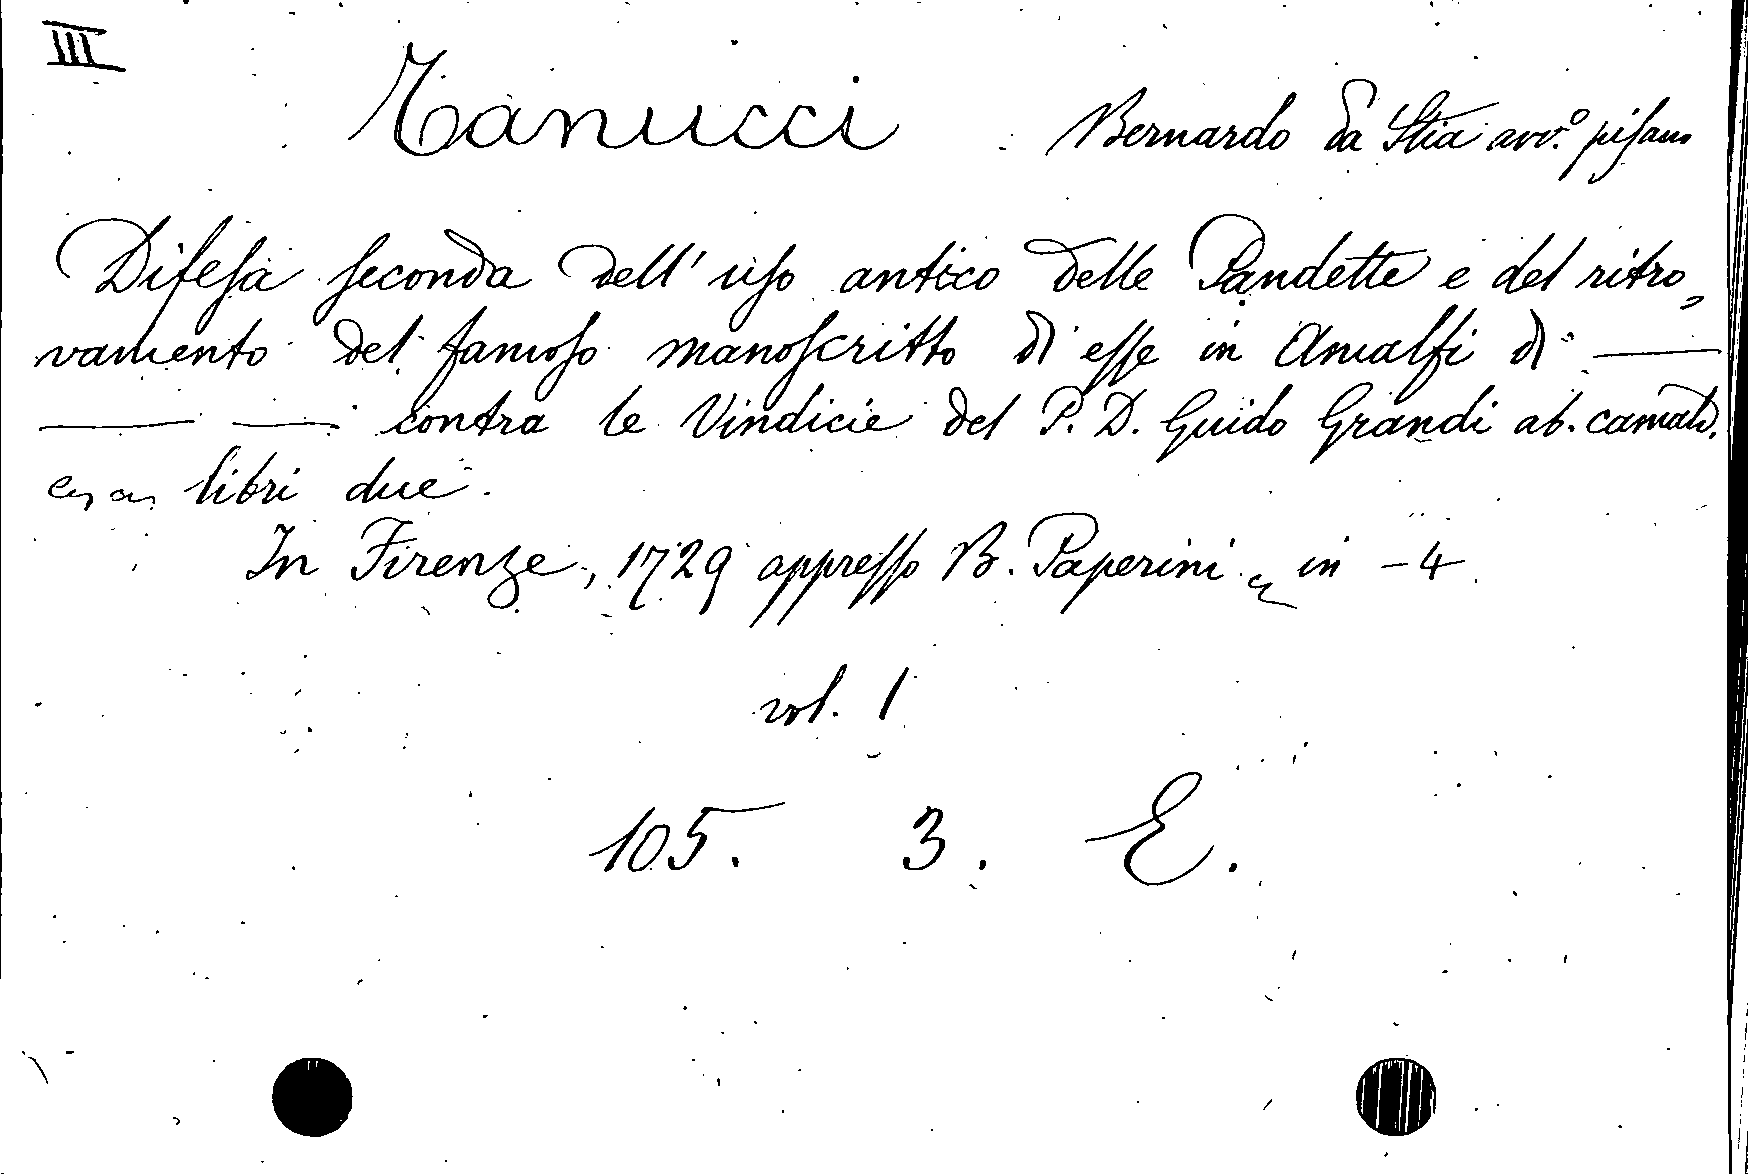 III
Tanucci Bernardo da Stia avv.º pisano
Difesa seconda dell' uso antico delle Pandette e del ritro,
vamento del famoso manoscritto di esse in Amalfi di ———
——— ——— contra le Vindicie del P. D. Guido Grandi ab. camald.
libri due.
In Firenze, 1729 appresso B. Paperini in -4
vol. 1
105. 3. E.